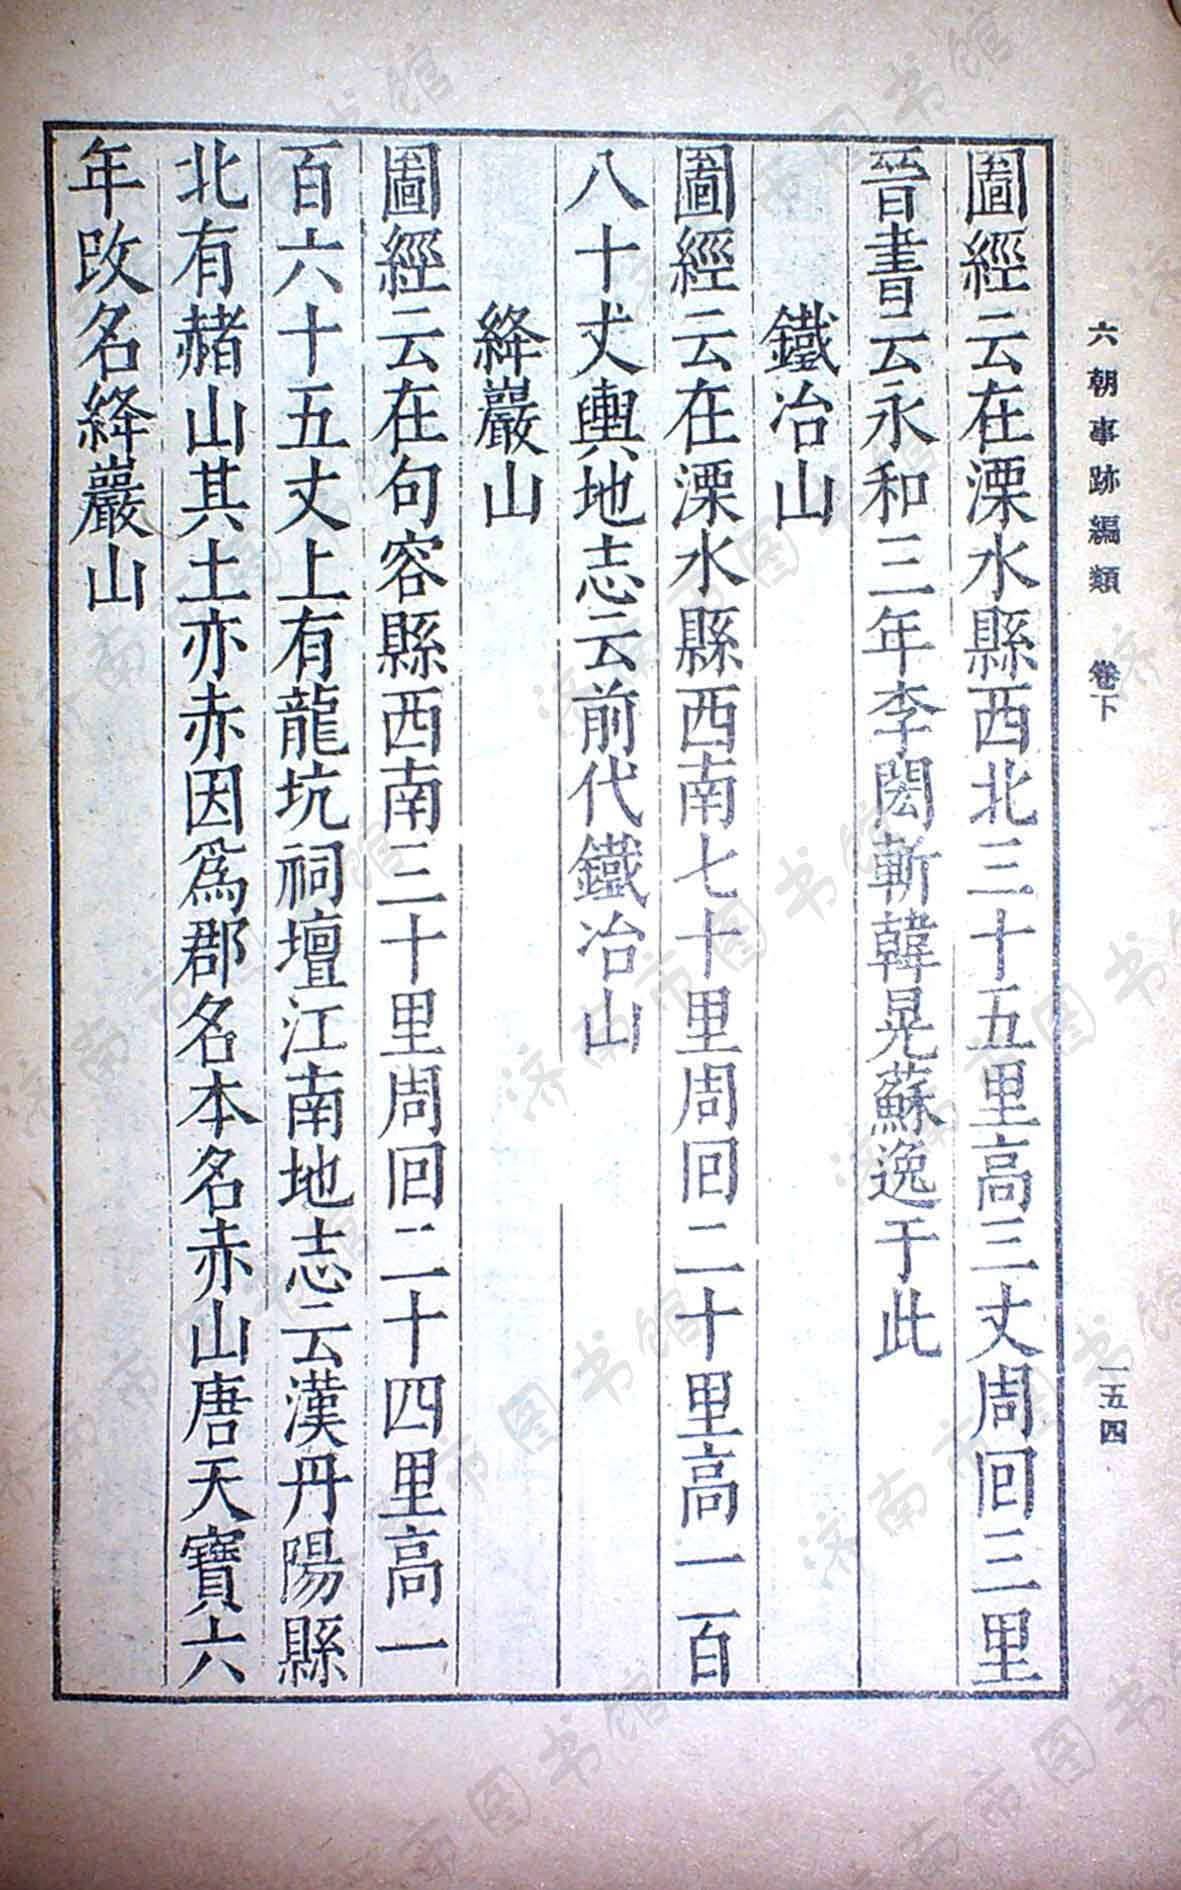 六朝事跡編類 卷下 一五四
圖經云在溧水縣西北三十五里高三丈周回三里
晉書云永和三年李閎斬韓晃蘇逸于此
鐵冶山
圖經云在溧水縣西南七十里周回二十里高一百
八十丈輿地志云前代鐵冶山
絳巖山
圖經云在句容縣西南三十里周回二十四里高一
百六十五丈上有龍坑祠壇江南地志云漢丹陽縣
北有赭山其土亦赤因為郡名本名赤山唐天寶六
年改名絳巖山
济南市图书馆